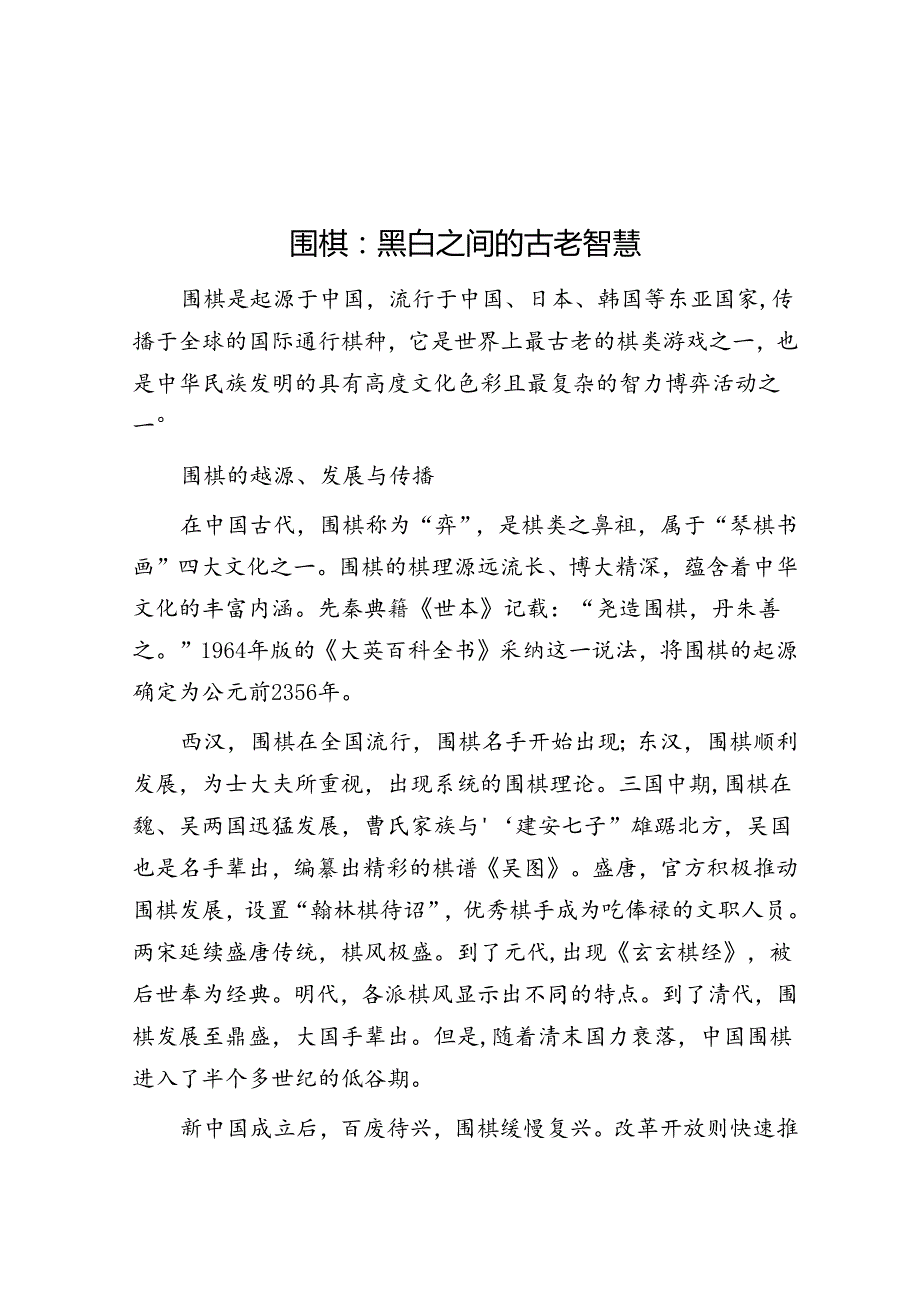 围棋：黑白之间的古老智慧
围棋是起源于中国，流行于中国、日本、韩国等东亚国家,传
播于全球的国际通行棋种，它是世界上最古老的棋类游戏之一，也
是中华民族发明的具有高度文化色彩且最复杂的智力博弈活动之
一°
围棋的越源、发展与传播
在中国古代，围棋称为“弈”，是棋类之鼻祖，属于“琴棋书
画”四大文化之一。围棋的棋理源远流长、博大精深，蕴含着中华
文化的丰富内涵。先秦典籍《世本》记载：“尧造围棋，丹朱善
之。”1964年版的《大英百科全书》采纳这一说法，将围棋的起源
确定为公元前2356年。
西汉，围棋在全国流行，围棋名手开始出现；东汉，围棋顺利
发展，为士大夫所重视，出现系统的围棋理论。三国中期,围棋在
魏、吴两国迅猛发展，曹氏家族与'‘建安七子”雄踞北方，吴国
也是名手辈出，编纂出精彩的棋谱《吴图》。盛唐，官方积极推动
围棋发展，设置“翰林棋待诏”，优秀棋手成为吃俸禄的文职人员。
两宋延续盛唐传统，棋风极盛。到了元代,出现《玄玄棋经》，被
后世奉为经典。明代，各派棋风显示出不同的特点。到了清代，围
棋发展至鼎盛，大国手辈出。但是,随着清末国力衰落，中国围棋
进入了半个多世纪的低谷期。
新中国成立后，百废待兴，围棋缓慢复兴。改革开放则快速推